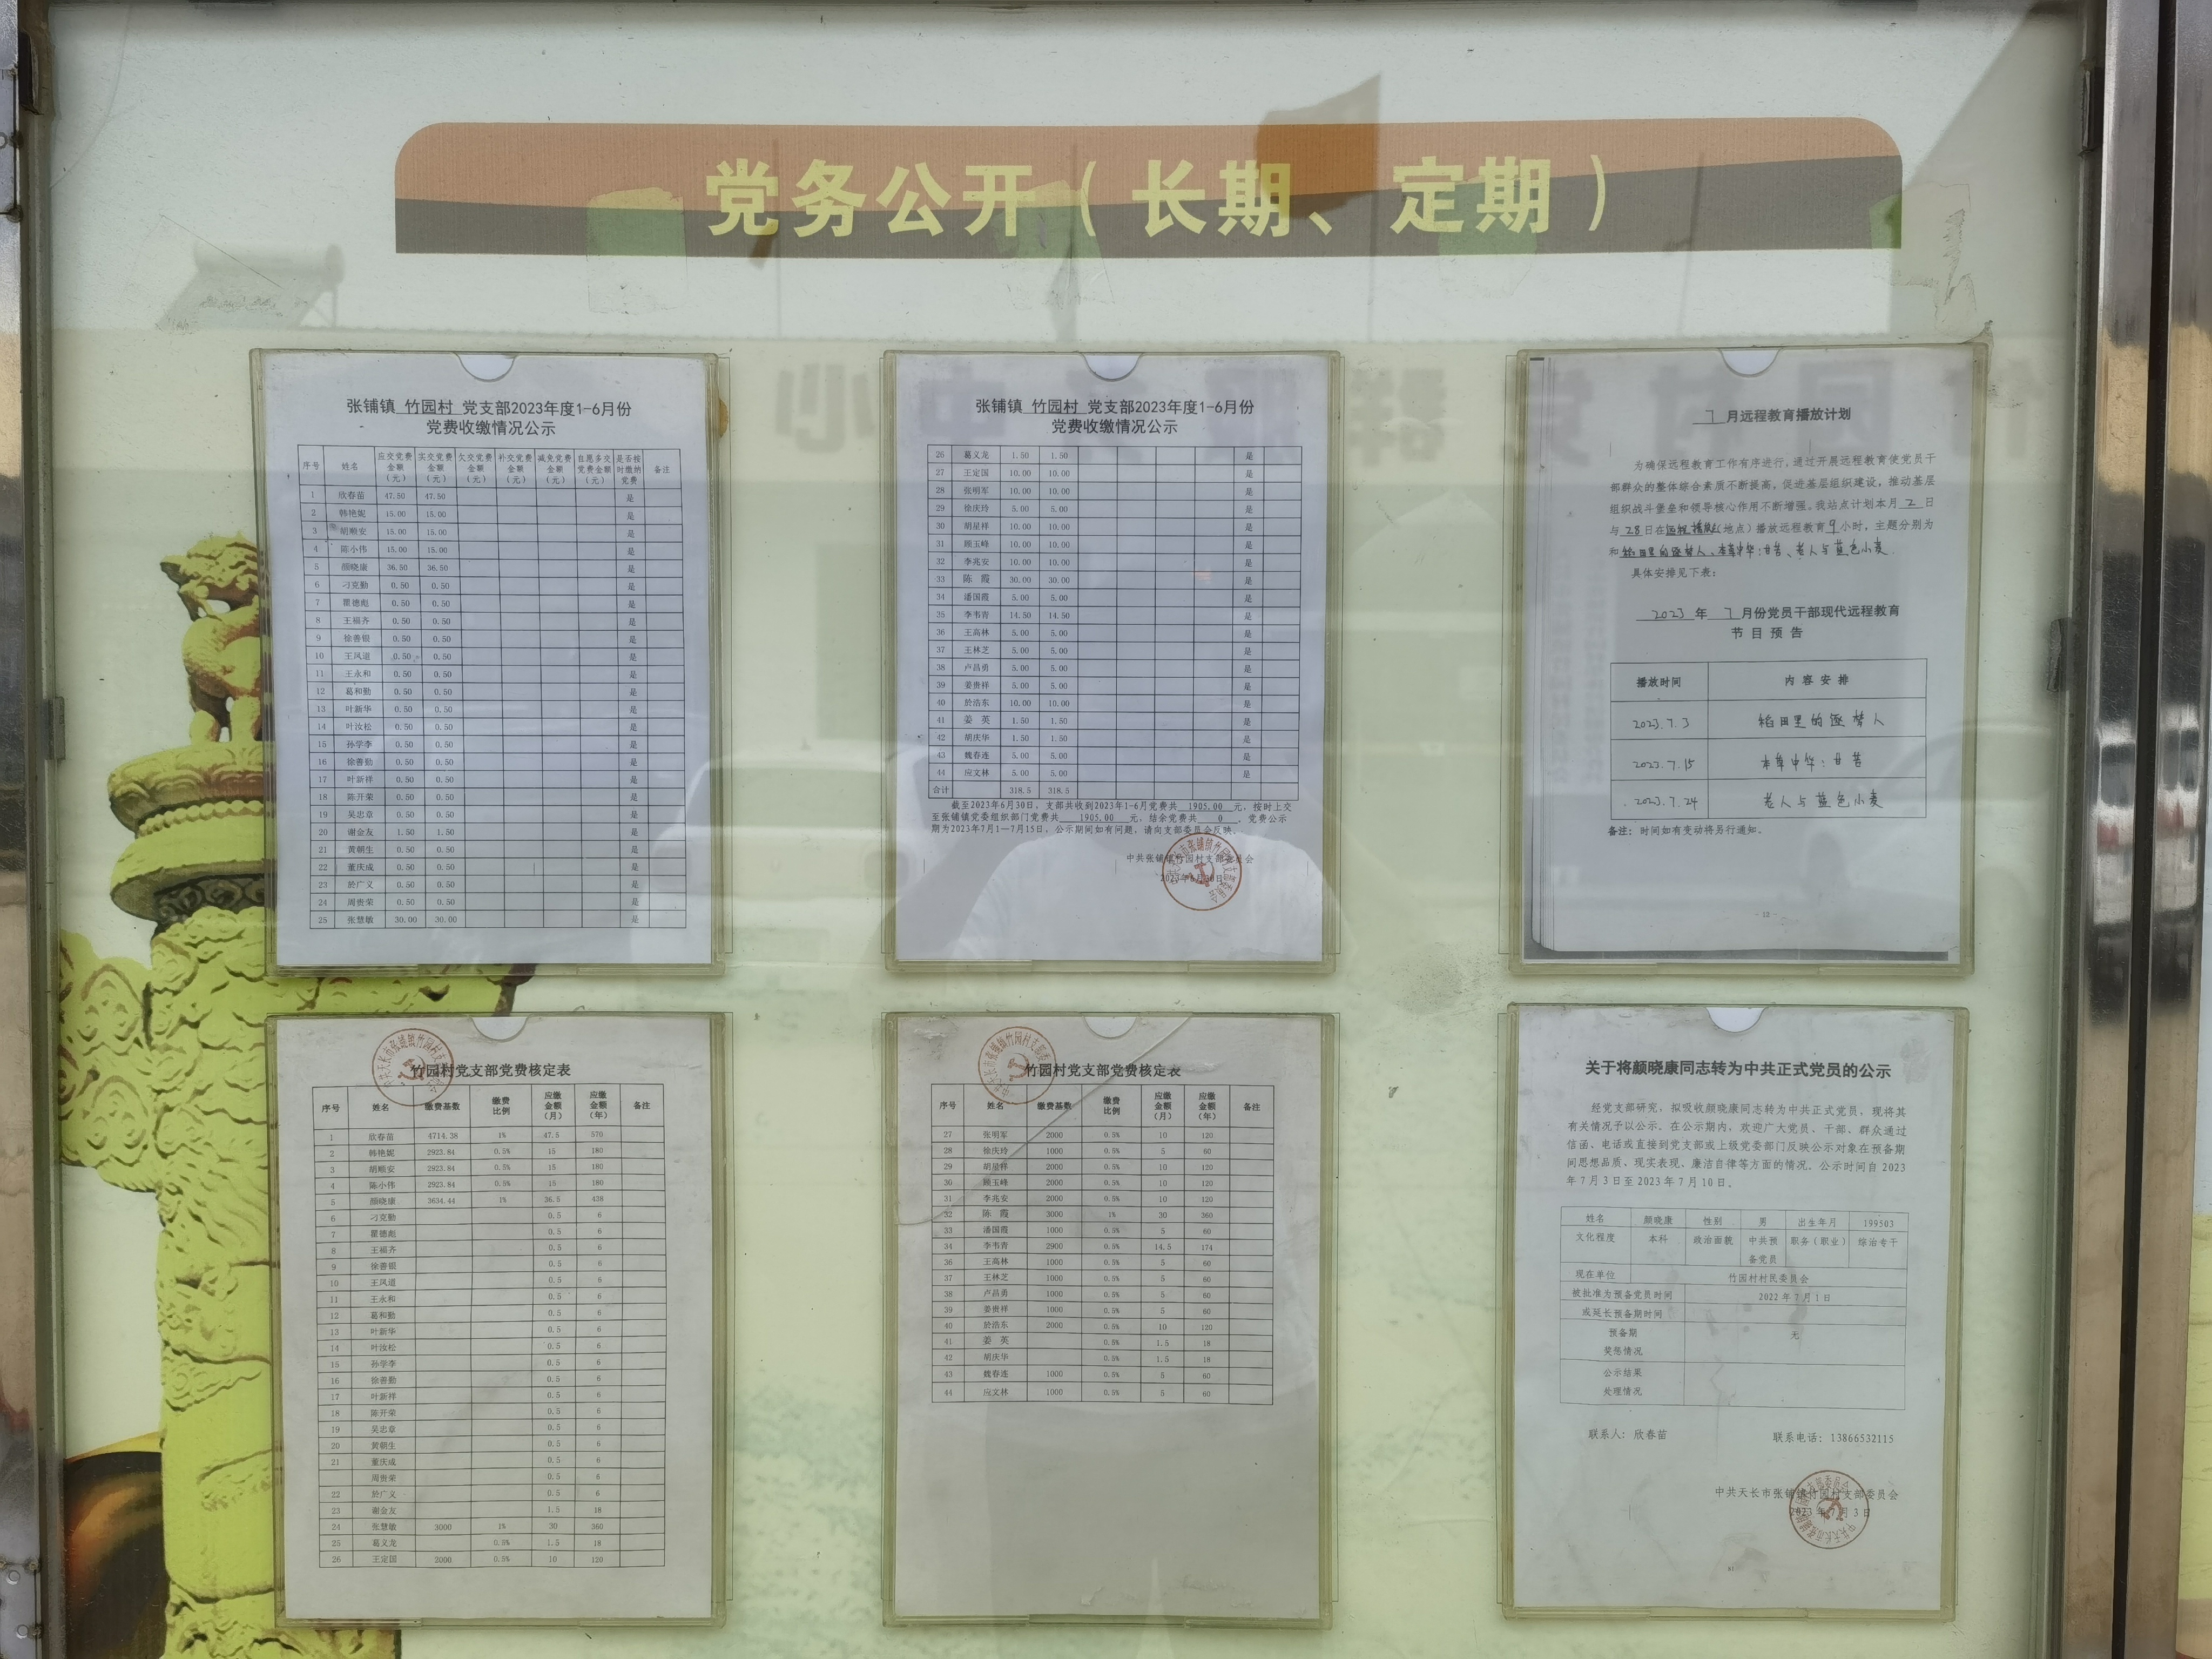 党务公开（长期、定期）
张铺镇 竹园村 党支部2023年度1-6月份
党费收缴情况公示
序号 姓名 应交党费金额（元） 实交党费金额（元） 欠交党费金额（元） 补交党费金额（元） 减免党费金额（元） 自愿多交党费金额（元） 是否按时缴纳党费 备注
1 欣春苗 47.50 47.50 是
2 韩艳妮 15.00 15.00 是
3 胡顺安 15.00 15.00 是
4 陈小伟 15.00 15.00 是
5 颜晓康 36.50 36.50 是
6 刁克勤 0.50 0.50 是
7 瞿德彪 0.50 0.50 是
8 王福齐 0.50 0.50 是
9 徐善银 0.50 0.50 是
10 王凤道 0.50 0.50 是
11 王永和 0.50 0.50 是
12 葛和勤 0.50 0.50 是
13 叶新华 0.50 0.50 是
14 叶汝松 0.50 0.50 是
15 孙学李 0.50 0.50 是
16 徐善勤 0.50 0.50 是
17 叶新祥 0.50 0.50 是
18 陈开荣 0.50 0.50 是
19 吴忠章 0.50 0.50 是
20 谢金友 1.50 1.50 是
21 黄朝生 0.50 0.50 是
22 董庆成 0.50 0.50 是
23 於广义 0.50 0.50 是
24 周贵荣 0.50 0.50 是
25 张慧敏 30.00 30.00 是
张铺镇 竹园村 党支部2023年度1-6月份
党费收缴情况公示
26 葛义龙 1.50 1.50 是
27 王定国 10.00 10.00 是
28 张明军 10.00 10.00 是
29 徐庆玲 5.00 5.00 是
30 胡星祥 10.00 10.00 是
31 顾玉峰 10.00 10.00 是
32 李兆安 10.00 10.00 是
33 陈 霞 30.00 30.00 是
34 潘国霞 5.00 5.00 是
35 李韦青 14.50 14.50 是
36 王高林 5.00 5.00 是
37 王林芝 5.00 5.00 是
38 卢昌勇 5.00 5.00 是
39 姜贵祥 5.00 5.00 是
40 於浩东 10.00 10.00 是
41 姜 英 1.50 1.50 是
42 胡庆华 1.50 1.50 是
43 魏春连 5.00 5.00 是
44 应文林 5.00 5.00 是
合计 318.5 318.5
截至2023年6月30日，支部共收到2023年1-6月党费共 1905.00 元，按时上交
至张铺镇党委组织部门党费共 1905.00 元，结余党费共 0 。党费公示
期为2023年7月1—7月15日，公示期间如有问题，请向支部委员会反映。
中共张铺镇竹园村支部委员会
2023年6月30日
7 月远程教育播放计划
为确保远程教育工作有序进行，通过开展远程教育使党员干
部群众的整体综合素质不断提高，促进基层组织建设，推动基层
组织战斗堡垒和领导核心作用不断增强。我站点计划本月 2 日
与 28 日在远程播放（地点）播放远程教育 9 小时，主题分别为
和 稻田里的逐梦人、本草中华:甘苦、老人与蓝色小麦.
具体安排见下表：
2023 年 7 月份党员干部现代远程教育
节 目 预 告
播放时间 内 容 安 排
2023.7.3 稻田里的逐梦人
2023.7.15 本草中华：甘苦
2023.7.24 老人与蓝色小麦
备注：时间如有变动将另行通知。
- 12 -
竹园村党支部党费核定表
序号 姓名 缴费基数 缴费比例 应缴金额（月） 应缴金额（年） 备注
1 欣春苗 4714.38 1% 47.5 570
2 韩艳妮 2923.84 0.5% 15 180
3 胡顺安 2923.84 0.5% 15 180
4 陈小伟 2923.84 0.5% 15 180
5 颜晓康 3634.44 1% 36.5 438
6 刁克勤 0.5 6
7 瞿德彪 0.5 6
8 王福齐 0.5 6
9 徐善银 0.5 6
10 王凤道 0.5 6
11 王永和 0.5 6
12 葛和勤 0.5 6
13 叶新华 0.5 6
14 叶汝松 0.5 6
15 孙学李 0.5 6
16 徐善勤 0.5 6
17 叶新祥 0.5 6
18 陈开荣 0.5 6
19 吴忠章 0.5 6
20 黄朝生 0.5 6
21 董庆成 0.5 6
周贵荣 0.5 6
22 於广义 0.5 6
23 谢金友 1.5 18
24 张慧敏 3000 1% 30 360
25 葛义龙 0.5% 1.5 18
26 王定国 2000 0.5% 10 120
竹园村党支部党费核定表
序号 姓名 缴费基数 缴费比例 应缴金额（月） 应缴金额（年） 备注
27 张明军 2000 0.5% 10 120
28 徐庆玲 1000 0.5% 5 60
29 胡星祥 2000 0.5% 10 120
30 顾玉峰 2000 0.5% 10 120
31 李兆安 2000 0.5% 10 120
32 陈 霞 3000 1% 30 360
33 潘国霞 1000 0.5% 5 60
34 李韦青 2900 0.5% 14.5 174
36 王高林 1000 0.5% 5 60
37 王林芝 1000 0.5% 5 60
38 卢昌勇 1000 0.5% 5 60
39 姜贵祥 1000 0.5% 5 60
40 於浩东 2000 0.5% 10 120
41 姜 英 0.5% 1.5 18
42 胡庆华 0.5% 1.5 18
43 魏春连 1000 0.5% 5 60
44 应文林 1000 0.5% 5 60
关于将颜晓康同志转为中共正式党员的公示
经党支部研究，拟吸收颜晓康同志转为中共正式党员，现将其
有关情况予以公示。在公示期内，欢迎广大党员、干部、群众通过
信函、电话或直接到党支部或上级党委部门反映公示对象在预备期
间思想品质、现实表现、廉洁自律等方面的情况。公示时间自 2023
年 7 月 3 日至 2023 年 7 月 10 日。
姓名 颜晓康 性别 男 出生年月 199503
文化程度 本科 政治面貌 中共预备党员 职务（职业） 综治专干
现在单位 竹园村村民委员会
被批准为预备党员时间 2022 年 7 月 1 日
或延长预备期时间
预备期奖惩情况 无
公示结果处理情况
联系人：欣春苗 联系电话：13866532115
中共天长市张铺镇竹园村支部委员会
2023 年 7 月 3 日